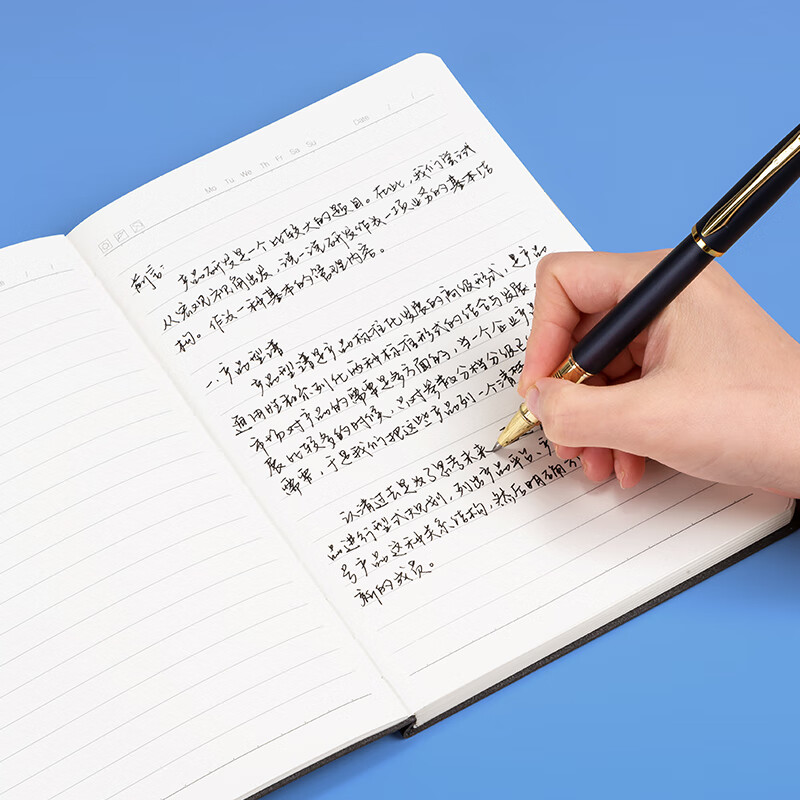 Date / /
Mo Tu We Th Fr Sa Su
前言:
产品研发是一个比较大的题目。在此,我们尝试
从宏观视角出发,说一说研发作为一项业务的基本结
构。作为一种基本的管理内容。
一.产品型谱
产品型谱是产品标准化发展的高级形式,是产品
通用性和系列化两种标准形式的结合与发展
市场对产品的需要是多方面的,当一个企业产
展比较多的时候,
需要,于是我们把这些产品列一个清
认清过去是为了思考未来
品进行型式规划,列出产品单品、
号产品这种关系结构,然后明确
新的成员。